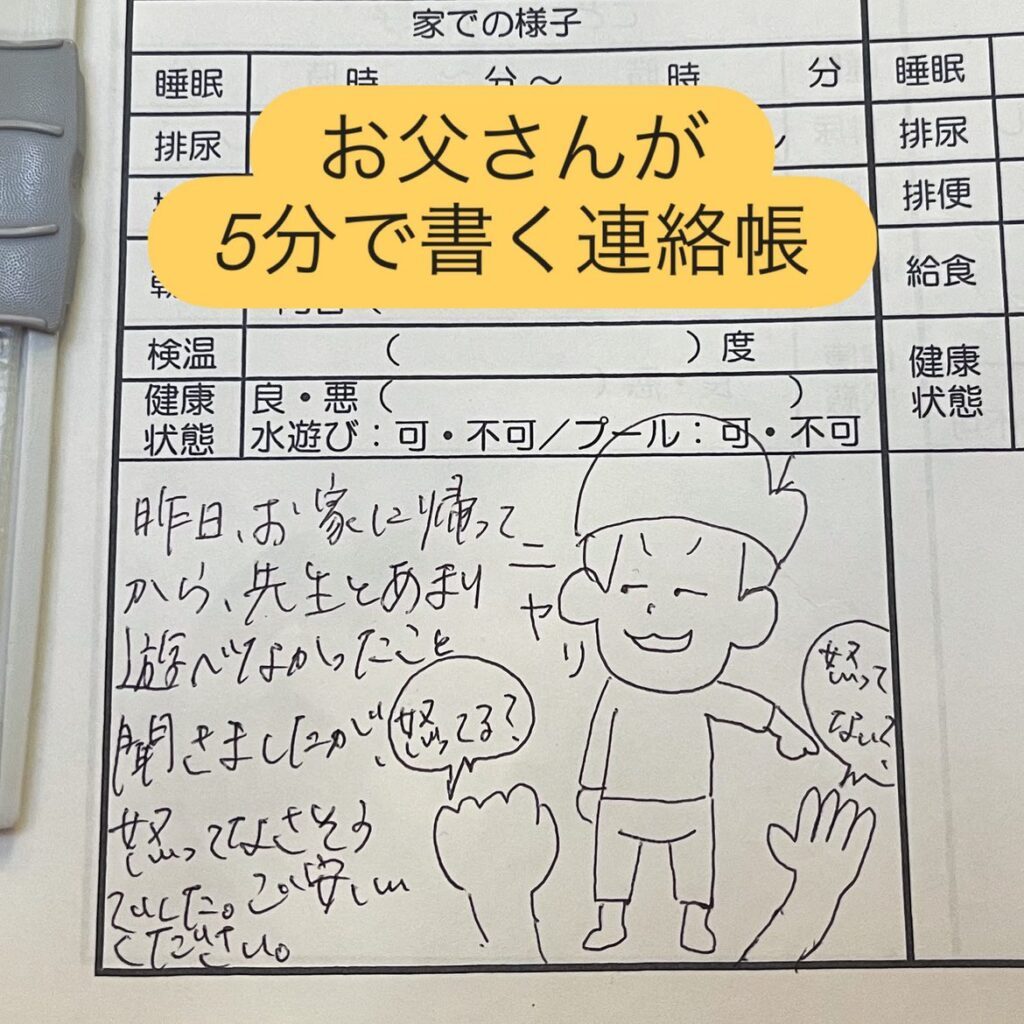 家での様子
睡眠 時 分～ 時 分 睡眠
お父さんが
5分で書く連絡帳
排尿 排尿
排便
給食
検温 ( )度
健康状態 良・悪( )
水遊び：可・不可／プール：可・不可
健康状態
昨日、お家に帰って
から、先生とあまり
遊べなかったこと
聞きましたが、
怒ってなさそう
でした。ご安心
ください。
ニヤリ
怒ってる？
怒って
ない？